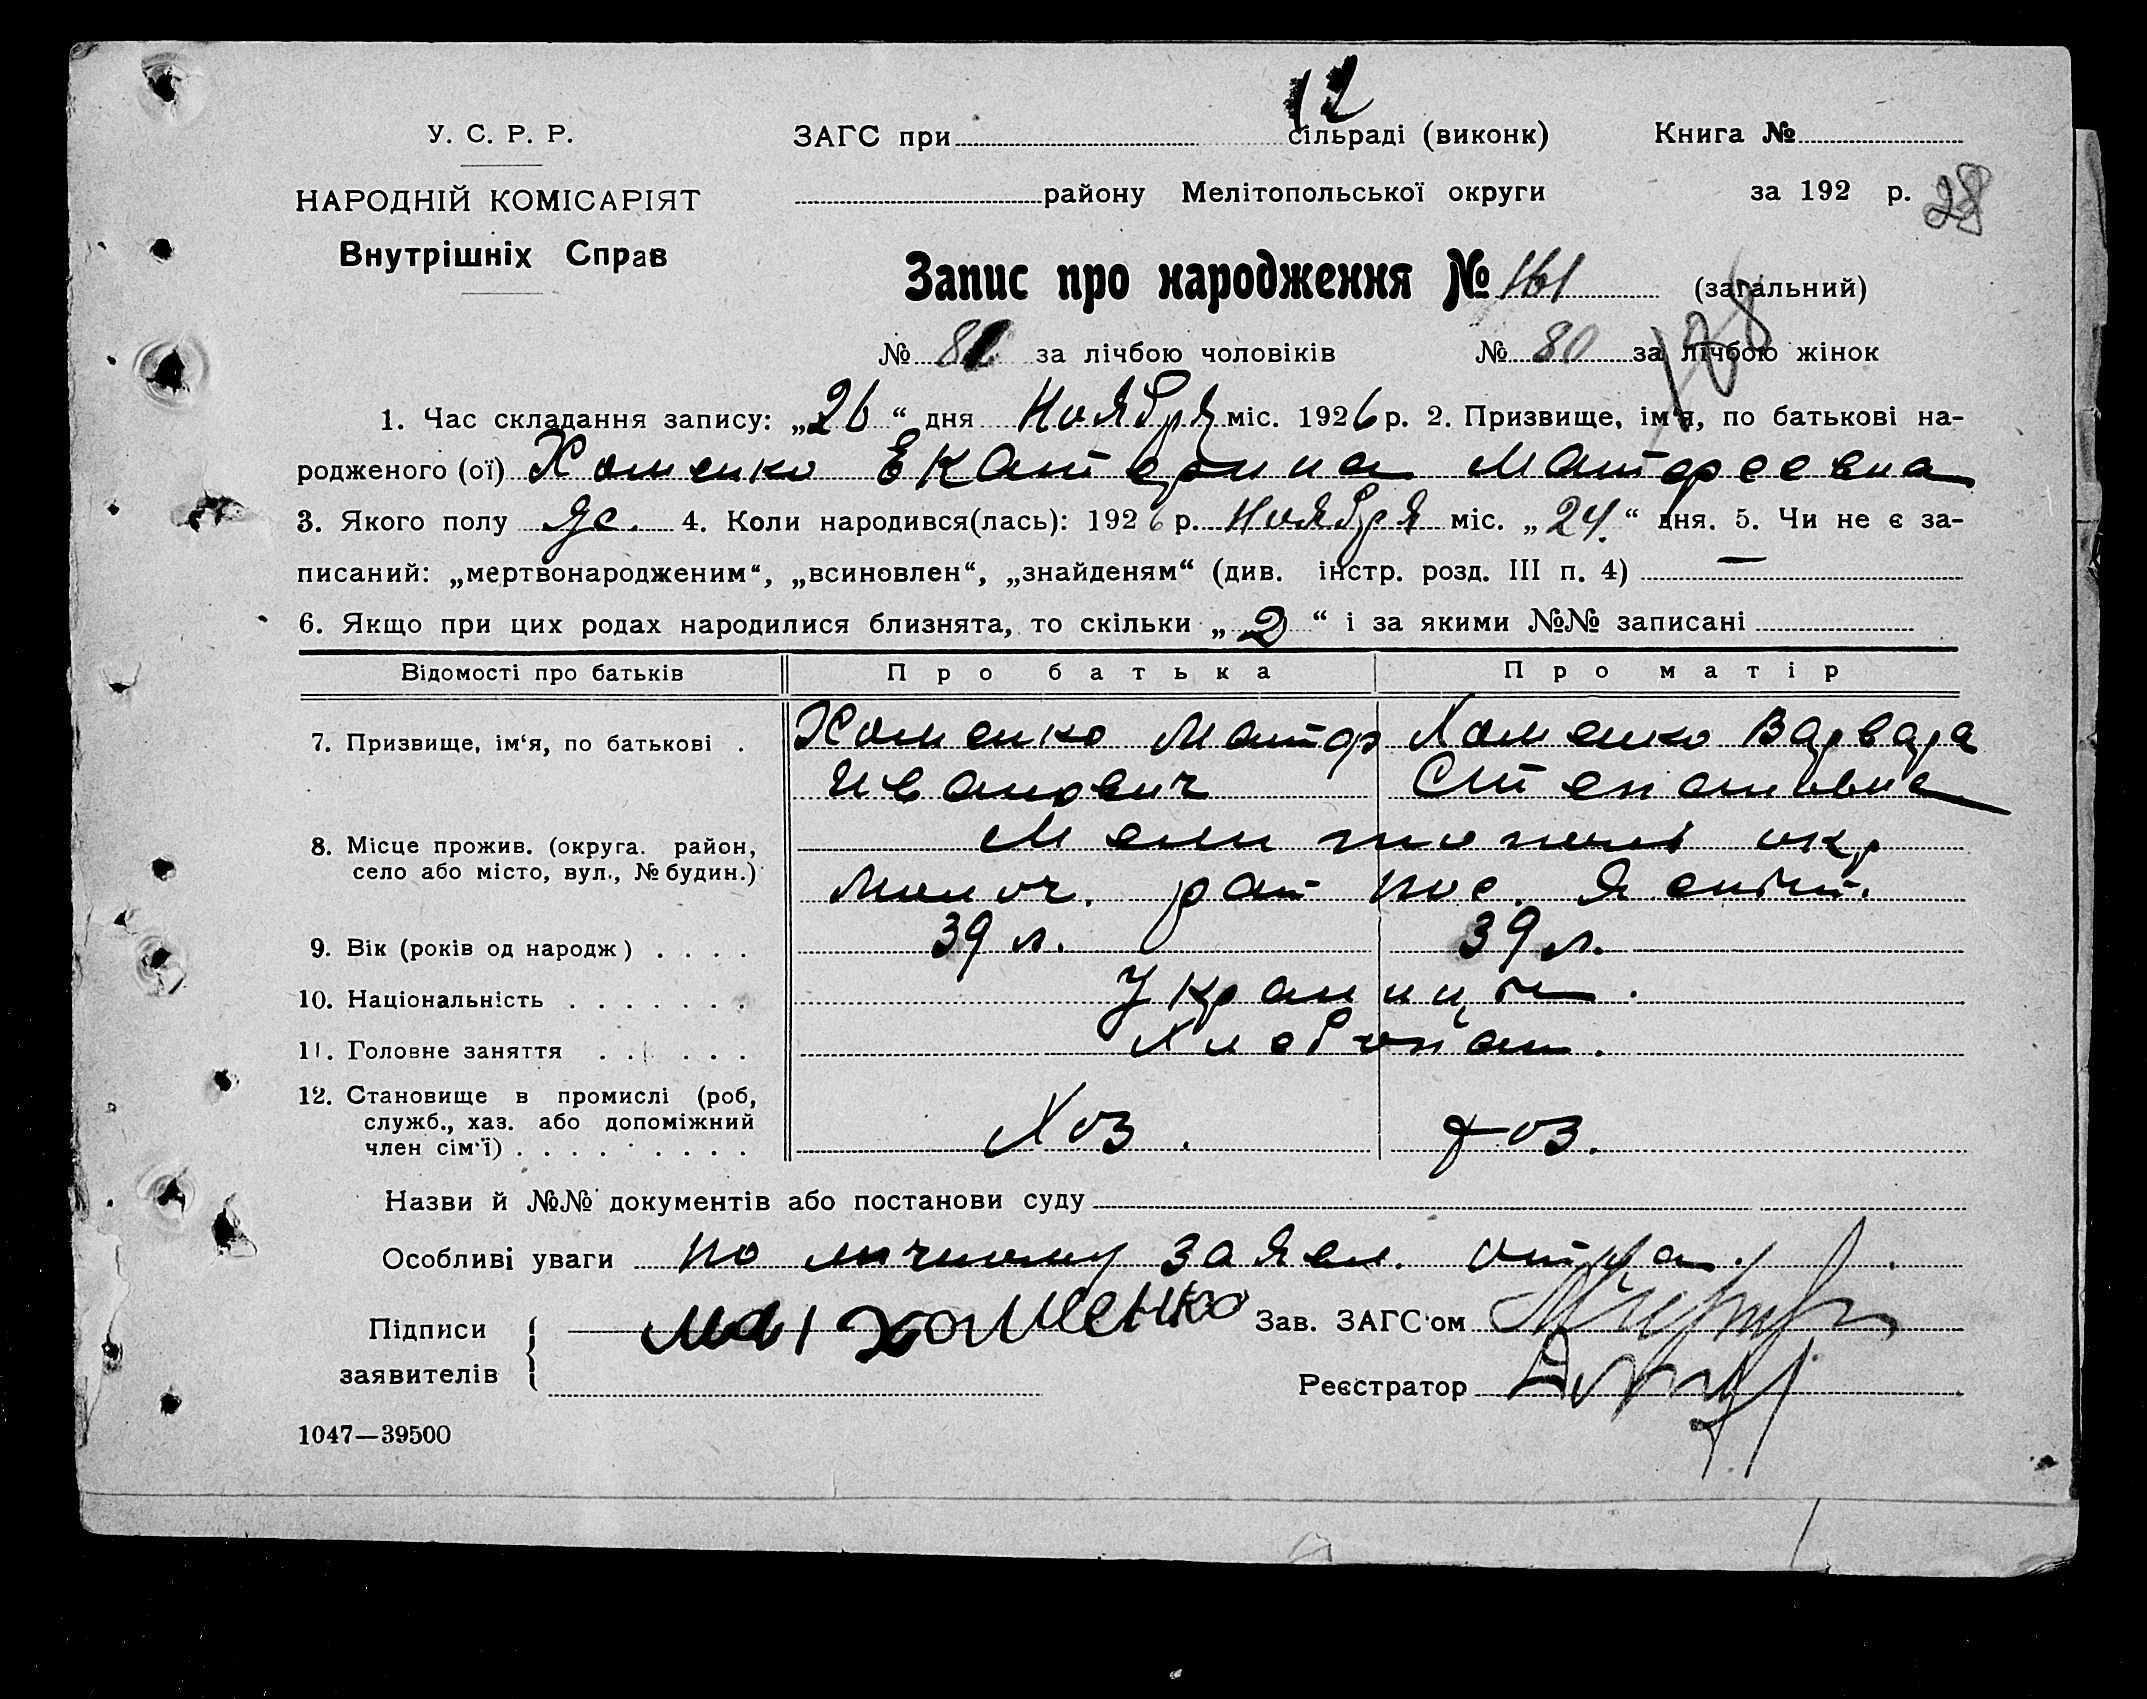 12
У. С. Р. Р. ЗАГС при сільраді (виконк) Книга №
НАРОДНІЙ КОМІСАРІЯТ району Мелітопольської округи за 192 р. 28
Внутрішніх Справ
Запис про народження № 161 (загальний)
№ 81 за лічбою чоловіків № 80 за лічбою жінок
128
1. Час складання запису: „26“ дня Ноября міс. 1926 р. 2. Призвище, ім'я, по батькові на-
родженого (ої) Хоменко Екатерина Матфеевна
3. Якого полу ж. 4. Коли народився(лась): 1926 р. Ноября міс. „24.“ дня. 5. Чи не є за-
писаний: „мертвонародженим“, „всиновлен“, „знайденям“ (див. інстр. розд. III п. 4) —
6. Якщо при цих родах народилися близнята, то скільки „2“ і за якими №№ записані
Відомості про батьків Про батька Про матір
7. Призвище, ім‘я, по батькові . Хоменко Матф Хоменко Варвара
Иванович Степановна
8. Місце прожив. (округа. район, Мелитопол окр
село або місто, вул., № будин.) Молоч. рай пос.
9. Вік (років од народж) . . . . 39 л. 39 л.
10. Національність . . . . . . . Украинцы.
11. Головне заняття . . . . . . Хлебопаш.
12. Становище в промислі (роб,
служб., хаз. або допоміжний Хоз. хоз.
член сім'ї) . . . . . . . . .
Назви й №№ документів або постанови суду
Особливі уваги по личному заявл. отца.
Підписи Хоменко Зав. ЗАГС'ом
заявителів Реєстратор
1047—39500